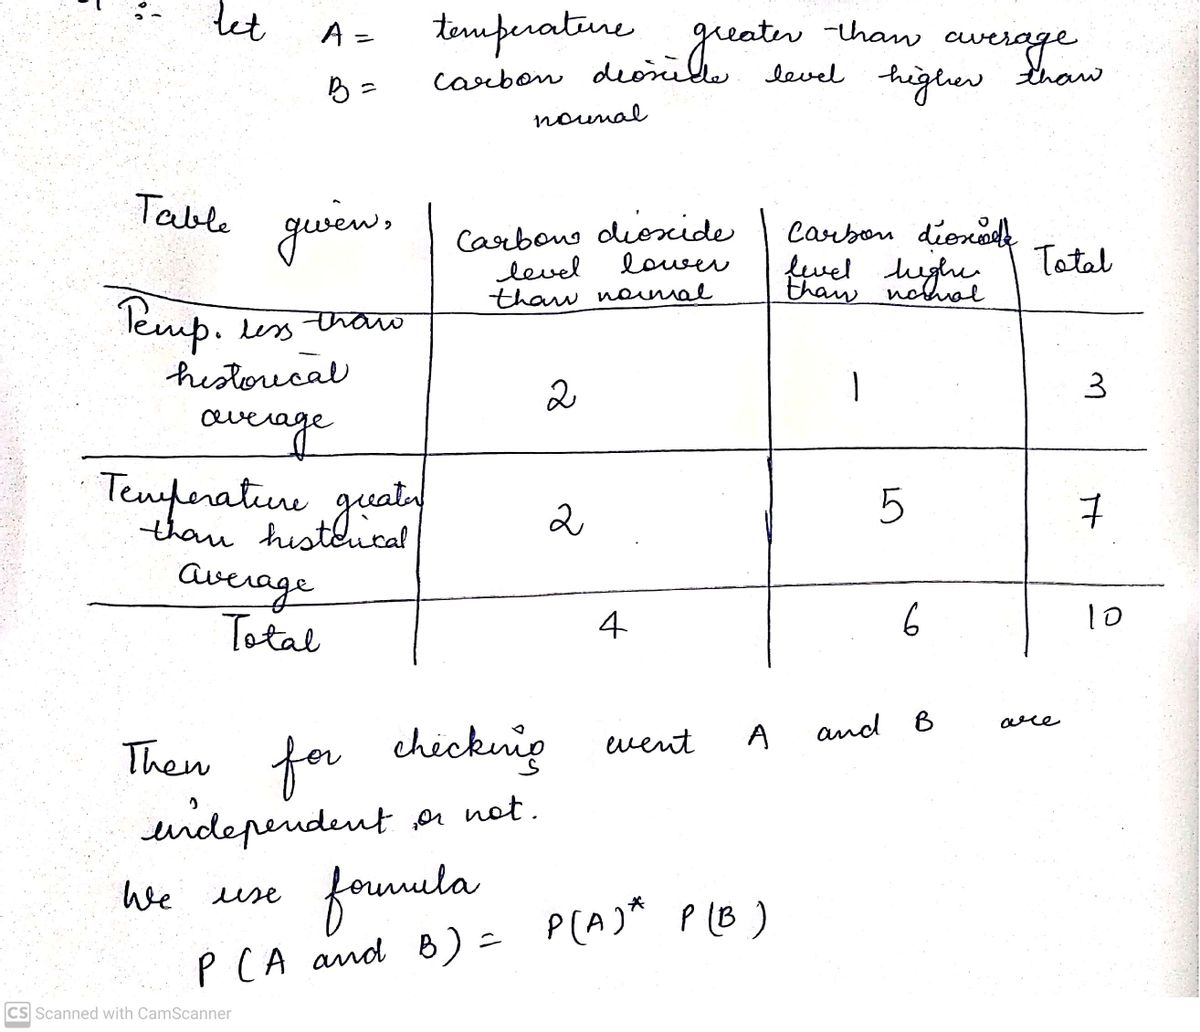 :- let A = temperature greater than average
B = carbon dioxide level higher than
normal
Table given,
Carbon dioxide
level lower
than normal
Carbon dioxide
level higher
than normal
Total
Temp. less than
historical
average
2
1
3
Temperature greater
than historical
average
2
5
7
Total
4
6
10
Then for checking event A and B are
independent or not.
We use formula
P (A and B) = P(A)* P(B)
CS Scanned with CamScanner